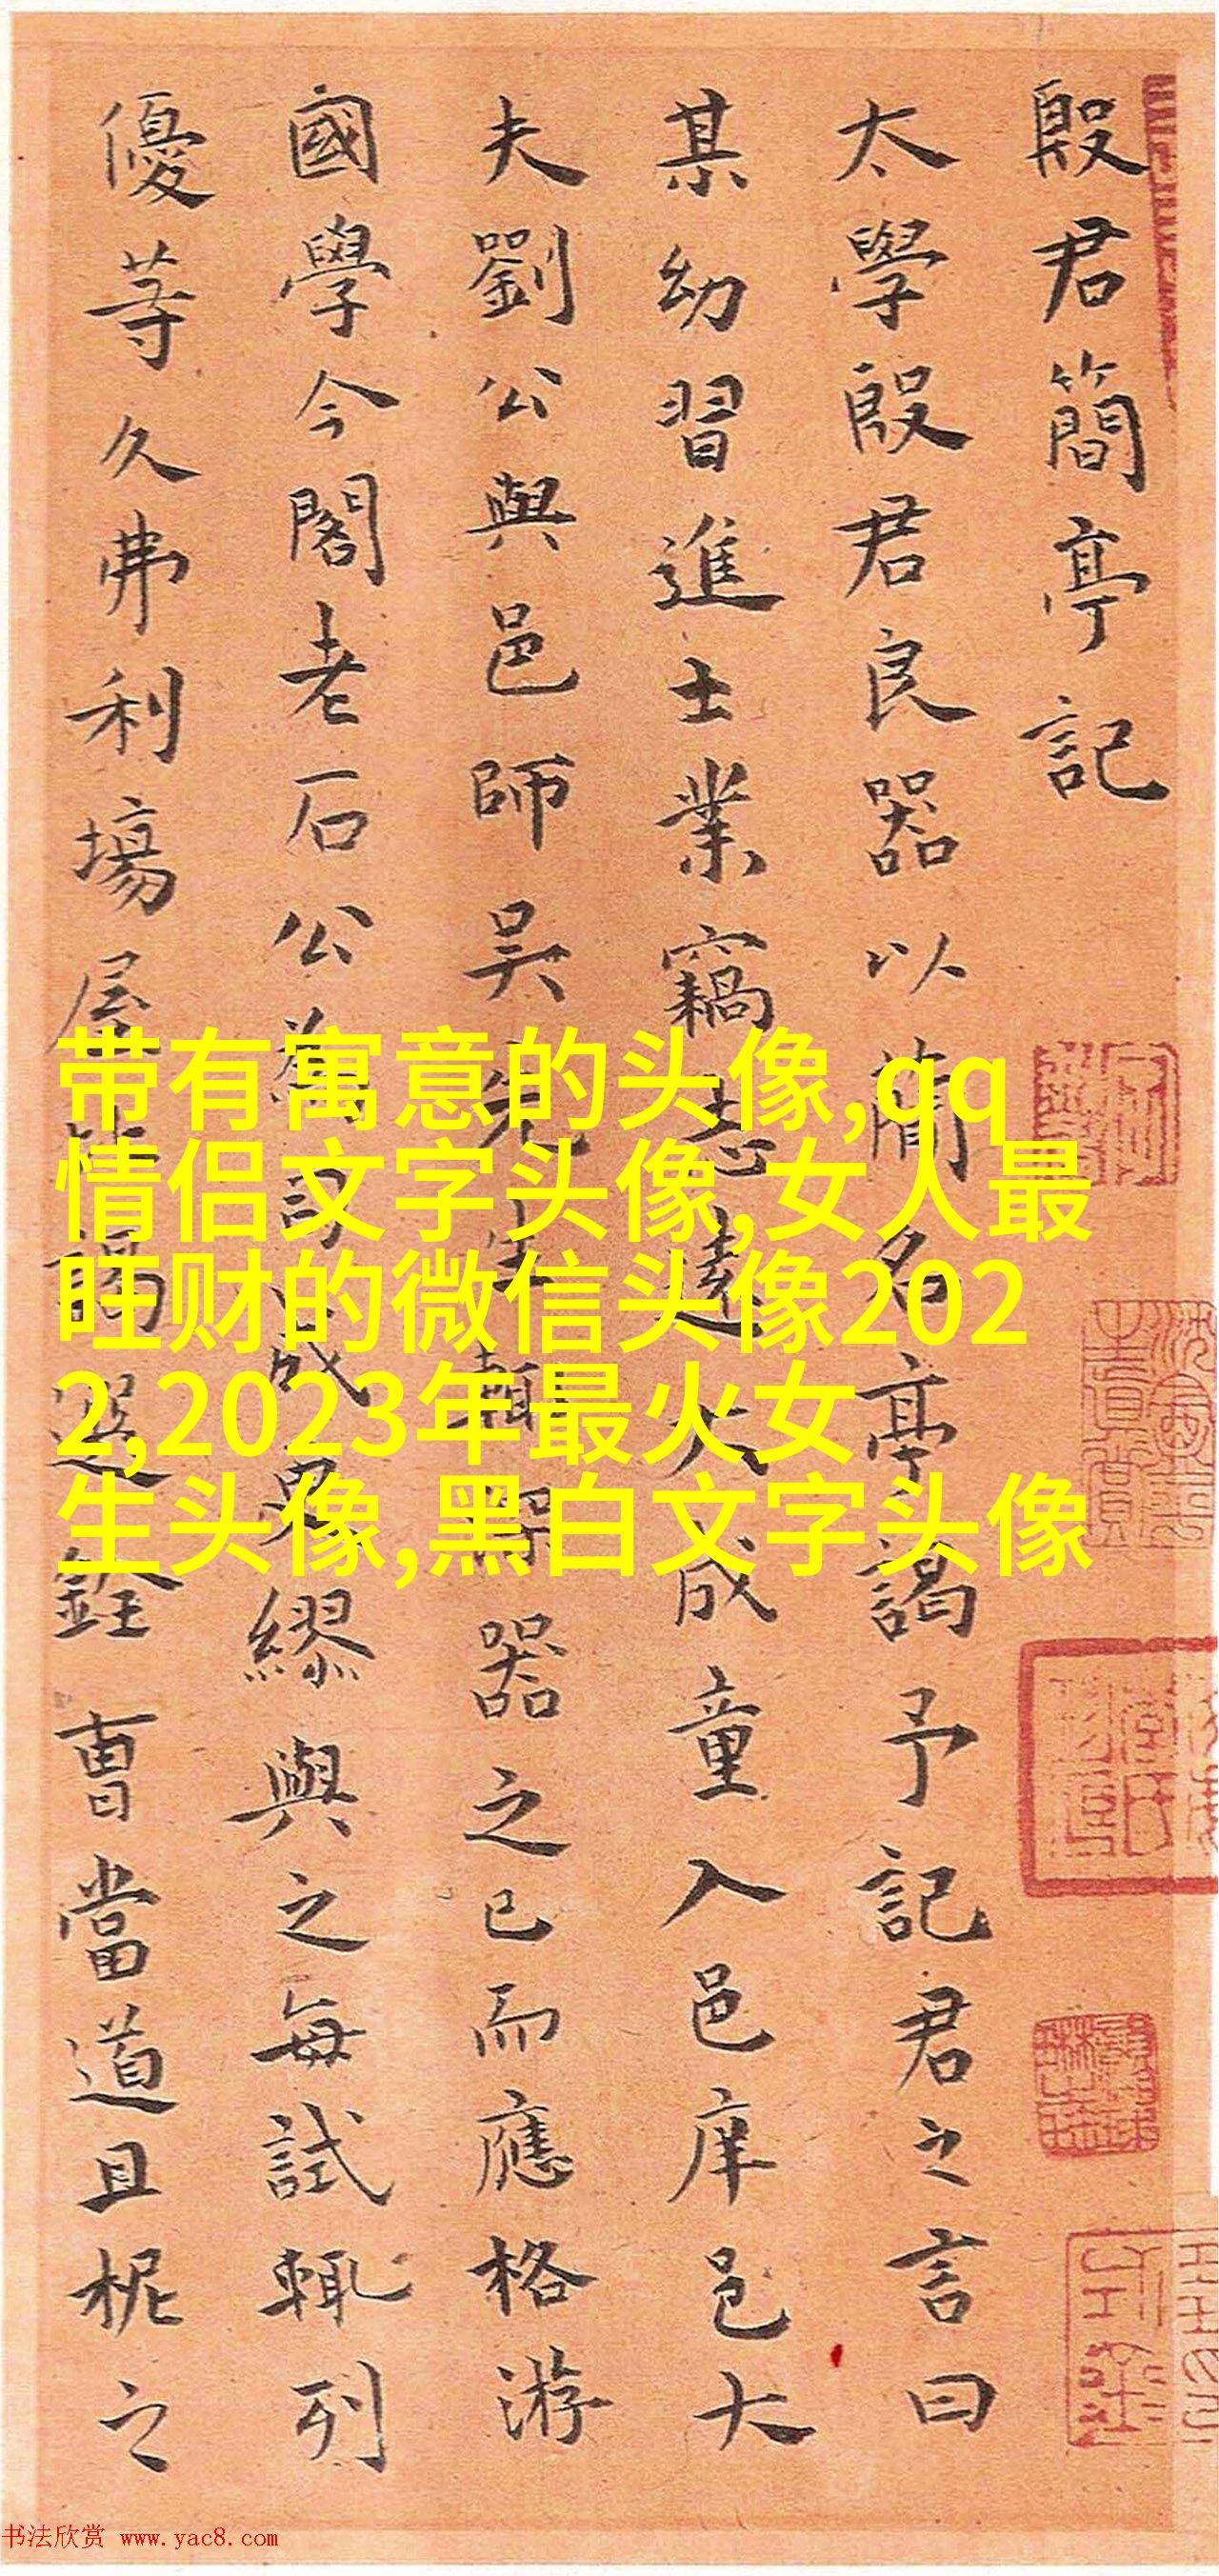 殷君簡亭記
太學殷君良器以簡名亭謁予記君之言曰
某幼習進士業竊志遠大成童入邑庠邑大
夫劉公與邑師吳先生輔深器之已而應格游
國學今閣老石公為司成見繆與之每試輒列
優等久弗利場屋比謁選銓曹當道且柅之
带有寓意的头像,qq
情侣文字头像,女人最
旺财的微信头像202
2,2023年最火女
生头像,黑白文字头像
书法欣赏 www.yac8.com